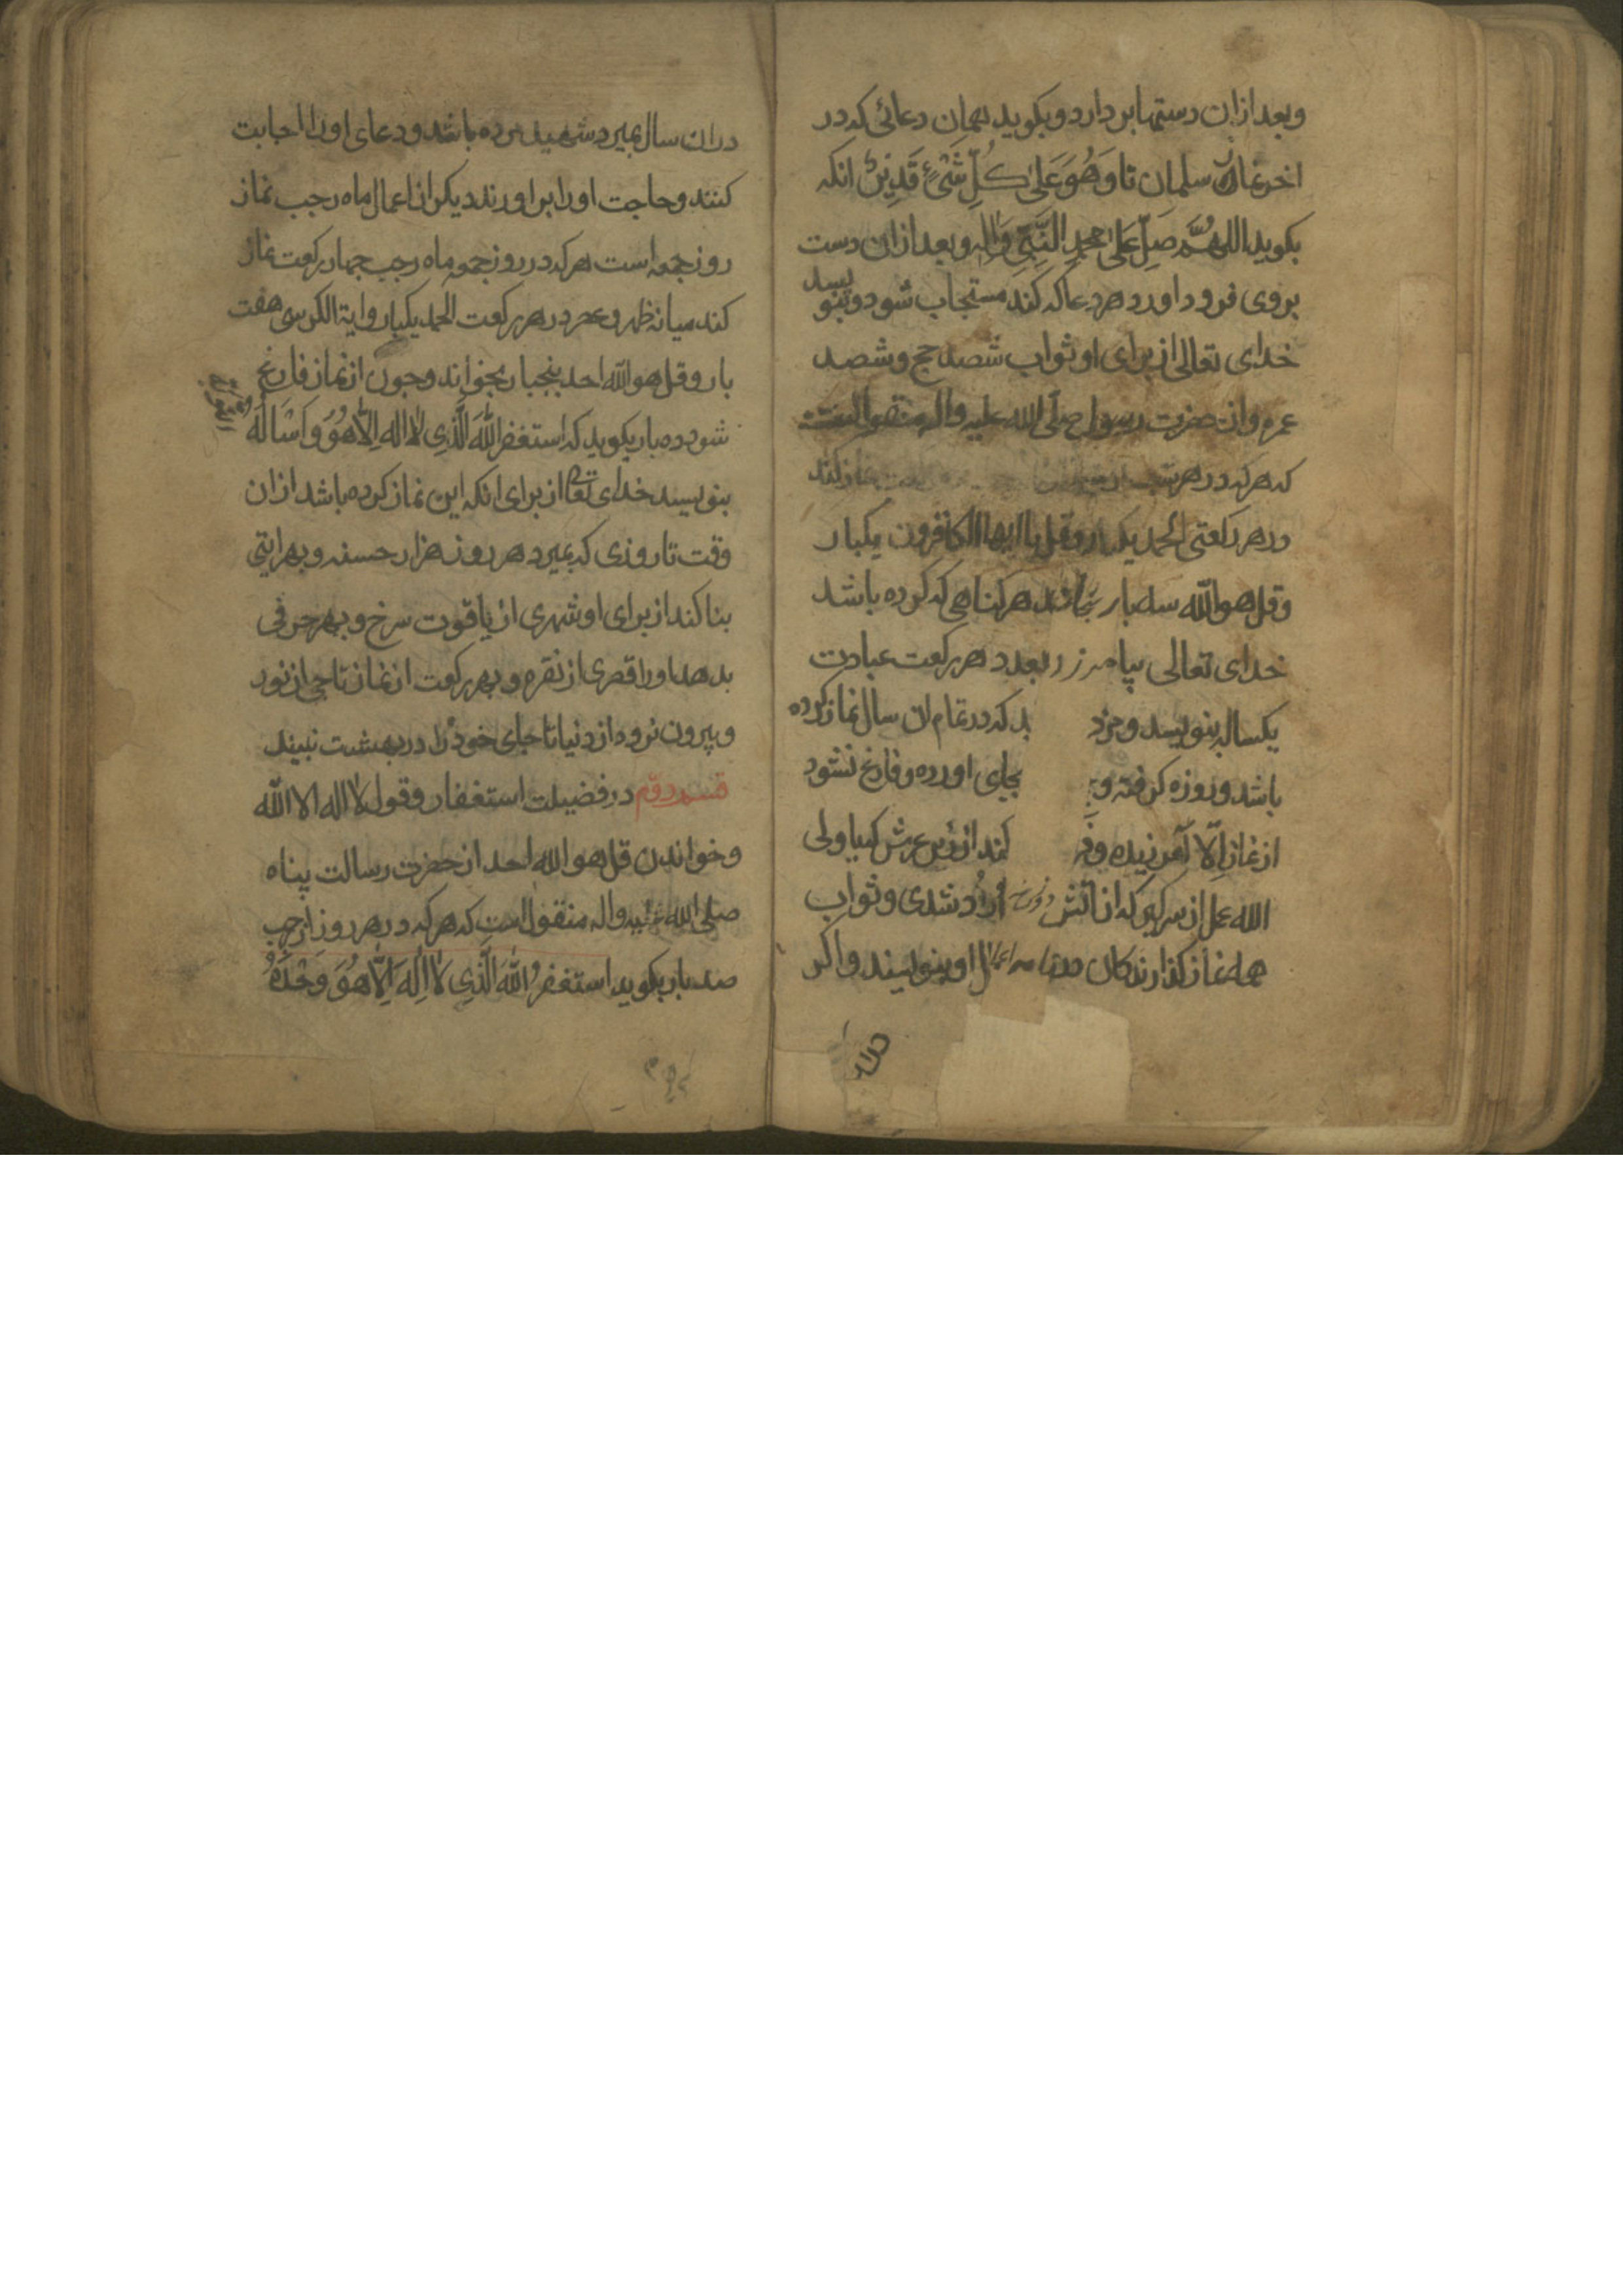 وبعد ازان دستها بر دارد و بکوید همان دعائی که در
اخر نماز سلمان تا وَهُوَ عَلیٰ کُلِّ شَیْءٍ قَدِیرٌ انکه
بکوید اللهُمَّ صَلِّ عَلیٰ محمدٍ النَّبِیِّ وَاٰلِهِ وبعد ازان دست
بروی فرود اورد هر دعا که کند مستجاب شود وبنویسد
خدای تعالی از برای او ثواب شصد حج و شصد
عمره وان حضرت رسول صلی الله علیه واله منقول است
که هر که در هر شب نماز کند
در هر رکعتی الحمد یکبار وقل یا ایها الکافرون یکبار
وقل هو الله سه بار بخواند هر کناهی که کرده باشد
خدای تعالی بیامرزد بعدد هر رکعت عبادت
یکساله بنویسد و مزد بد که در تمام ان سال نماز کرده
باشد وروزه کرفته و بجای اورده وفارغ نشود
از نماز اِلّا آمرزیده و کند از زیر عرش کیاولی
الله عمل از سرکیر که از اتش دوزخ آزاد شدی وثواب
همه نماز کذارندکان در نامه اعمال او بنویسند واکر
دران
دران سال بمیرد شهید مرده باشد ودعای او را اجابت
کنند وحاجت او را بر اورند دیکر از اعمال ماه رجب نماز
روز جمعه است هر که در روز جمعه ماه رجب جهار رکعت نماز
کند میانه ظهر و عصر در هر رکعت الحمد یکبار وایة الکرسی هفت
بار وقل هو الله احد پنجبار بخواند وجون از نماز فارغ
شود ده بار بکوید که استغفر اللهَ الَّذِی لا اله اِلّا هُوَ وَاَسْاَلُهُ
بنویسد خدای تعالی از برای انکه این نماز کرده باشد ازان
وقت تا روزی که بمیرد هر روز هزار حسنه و بهر ایتی
بنا کند از برای او شهری از یاقوت سرخ و بهر حرفی
بدهد اورا قصری از نقره و بهر رکعت از نماز تاجی از نور
وبیرون نرود از دنیا تا جای خود را در بهشت نبیند
قسم دوّم در فضیلت استغفار وقول لا اله الا الله
وخواندن قل هو الله احد از حضرت رسالت پناه
صلی الله علیه واله منقول است که هر که در هر روز از رجب
صد بار بکوید استغفرُ اللهَ الَّذِی لا اِلٰهَ اِلّا هُوَ وَحْدَهُ